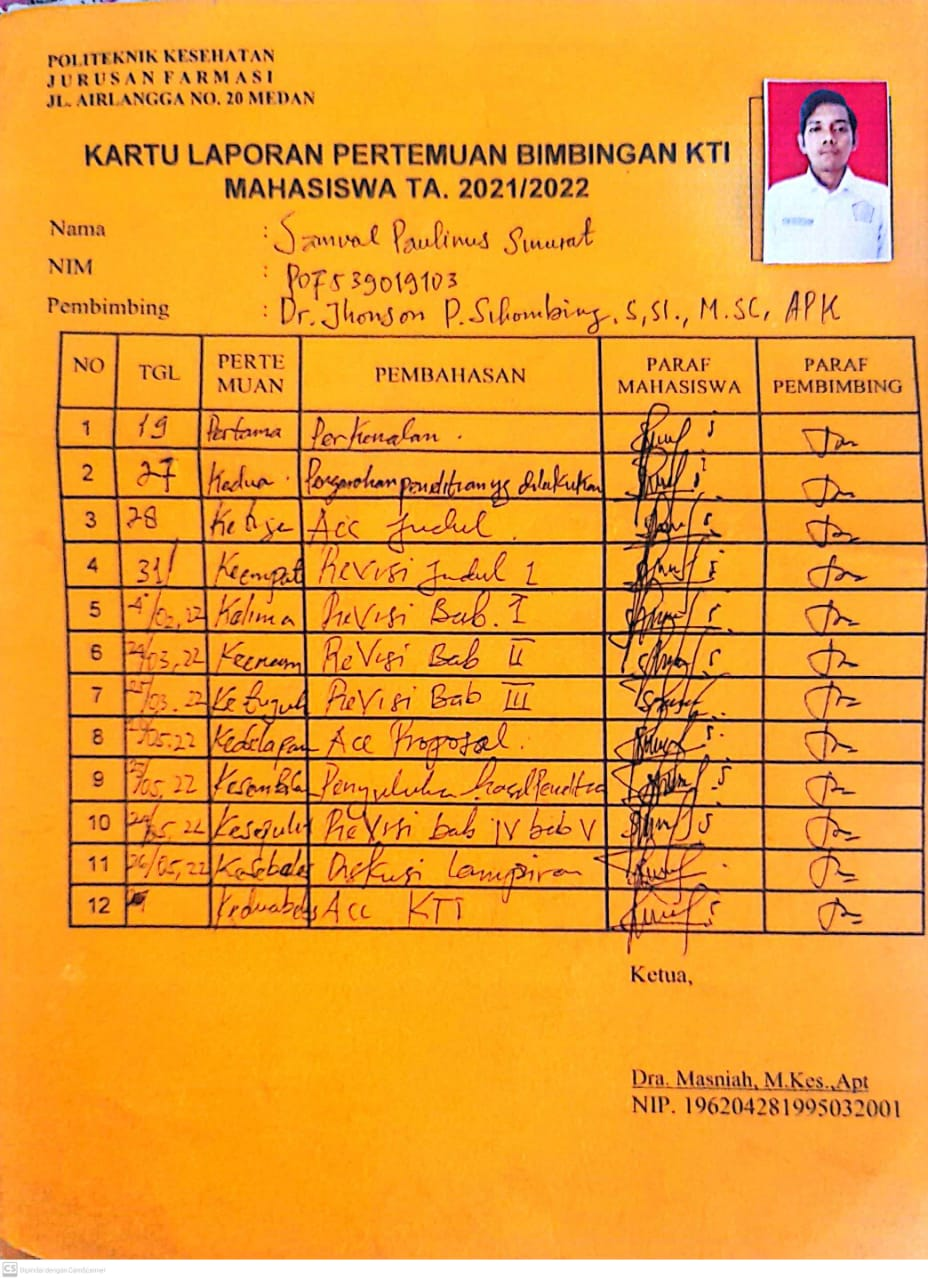 POLITEKNIK KESEHATAN
JURUSAN FARMASI
JL. AIRLANGGA NO. 20 MEDAN
KARTU LAPORAN PERTEMUAN BIMBINGAN KTI
MAHASISWA TA. 2021/2022
Nama : Paulinus Sinurat
NIM : P07539019103
Pembimbing : Dr. Jhonson P. Sihombing, S,SI., M.SC, APK
NO TGL PERTE MUAN PEMBAHASAN PARAF MAHASISWA PARAF PEMBIMBING
1 19 Pertama Perkenalan .
2 27 Kedua . dilakukan
3 28 Ketiga Acc Judul .
4 31/ Keempat Revisi Judul I
5 /02,22 Kelima Revisi Bab. I
6 /03,22 Keenam Revisi Bab II
7 /03.22 Ketujuh Revisi Bab III
8 /05.22 Kedelapan Acc Proposal .
9 /05,22
10 /05,22 Revisi bab IV bab V
11 26/05,22 Diskusi Lampiran
12 Keduabelas Acc KTI
Ketua,
Dra. Masniah, M.Kes.,Apt
NIP. 196204281995032001
CS Dipindai dengan CamScanner